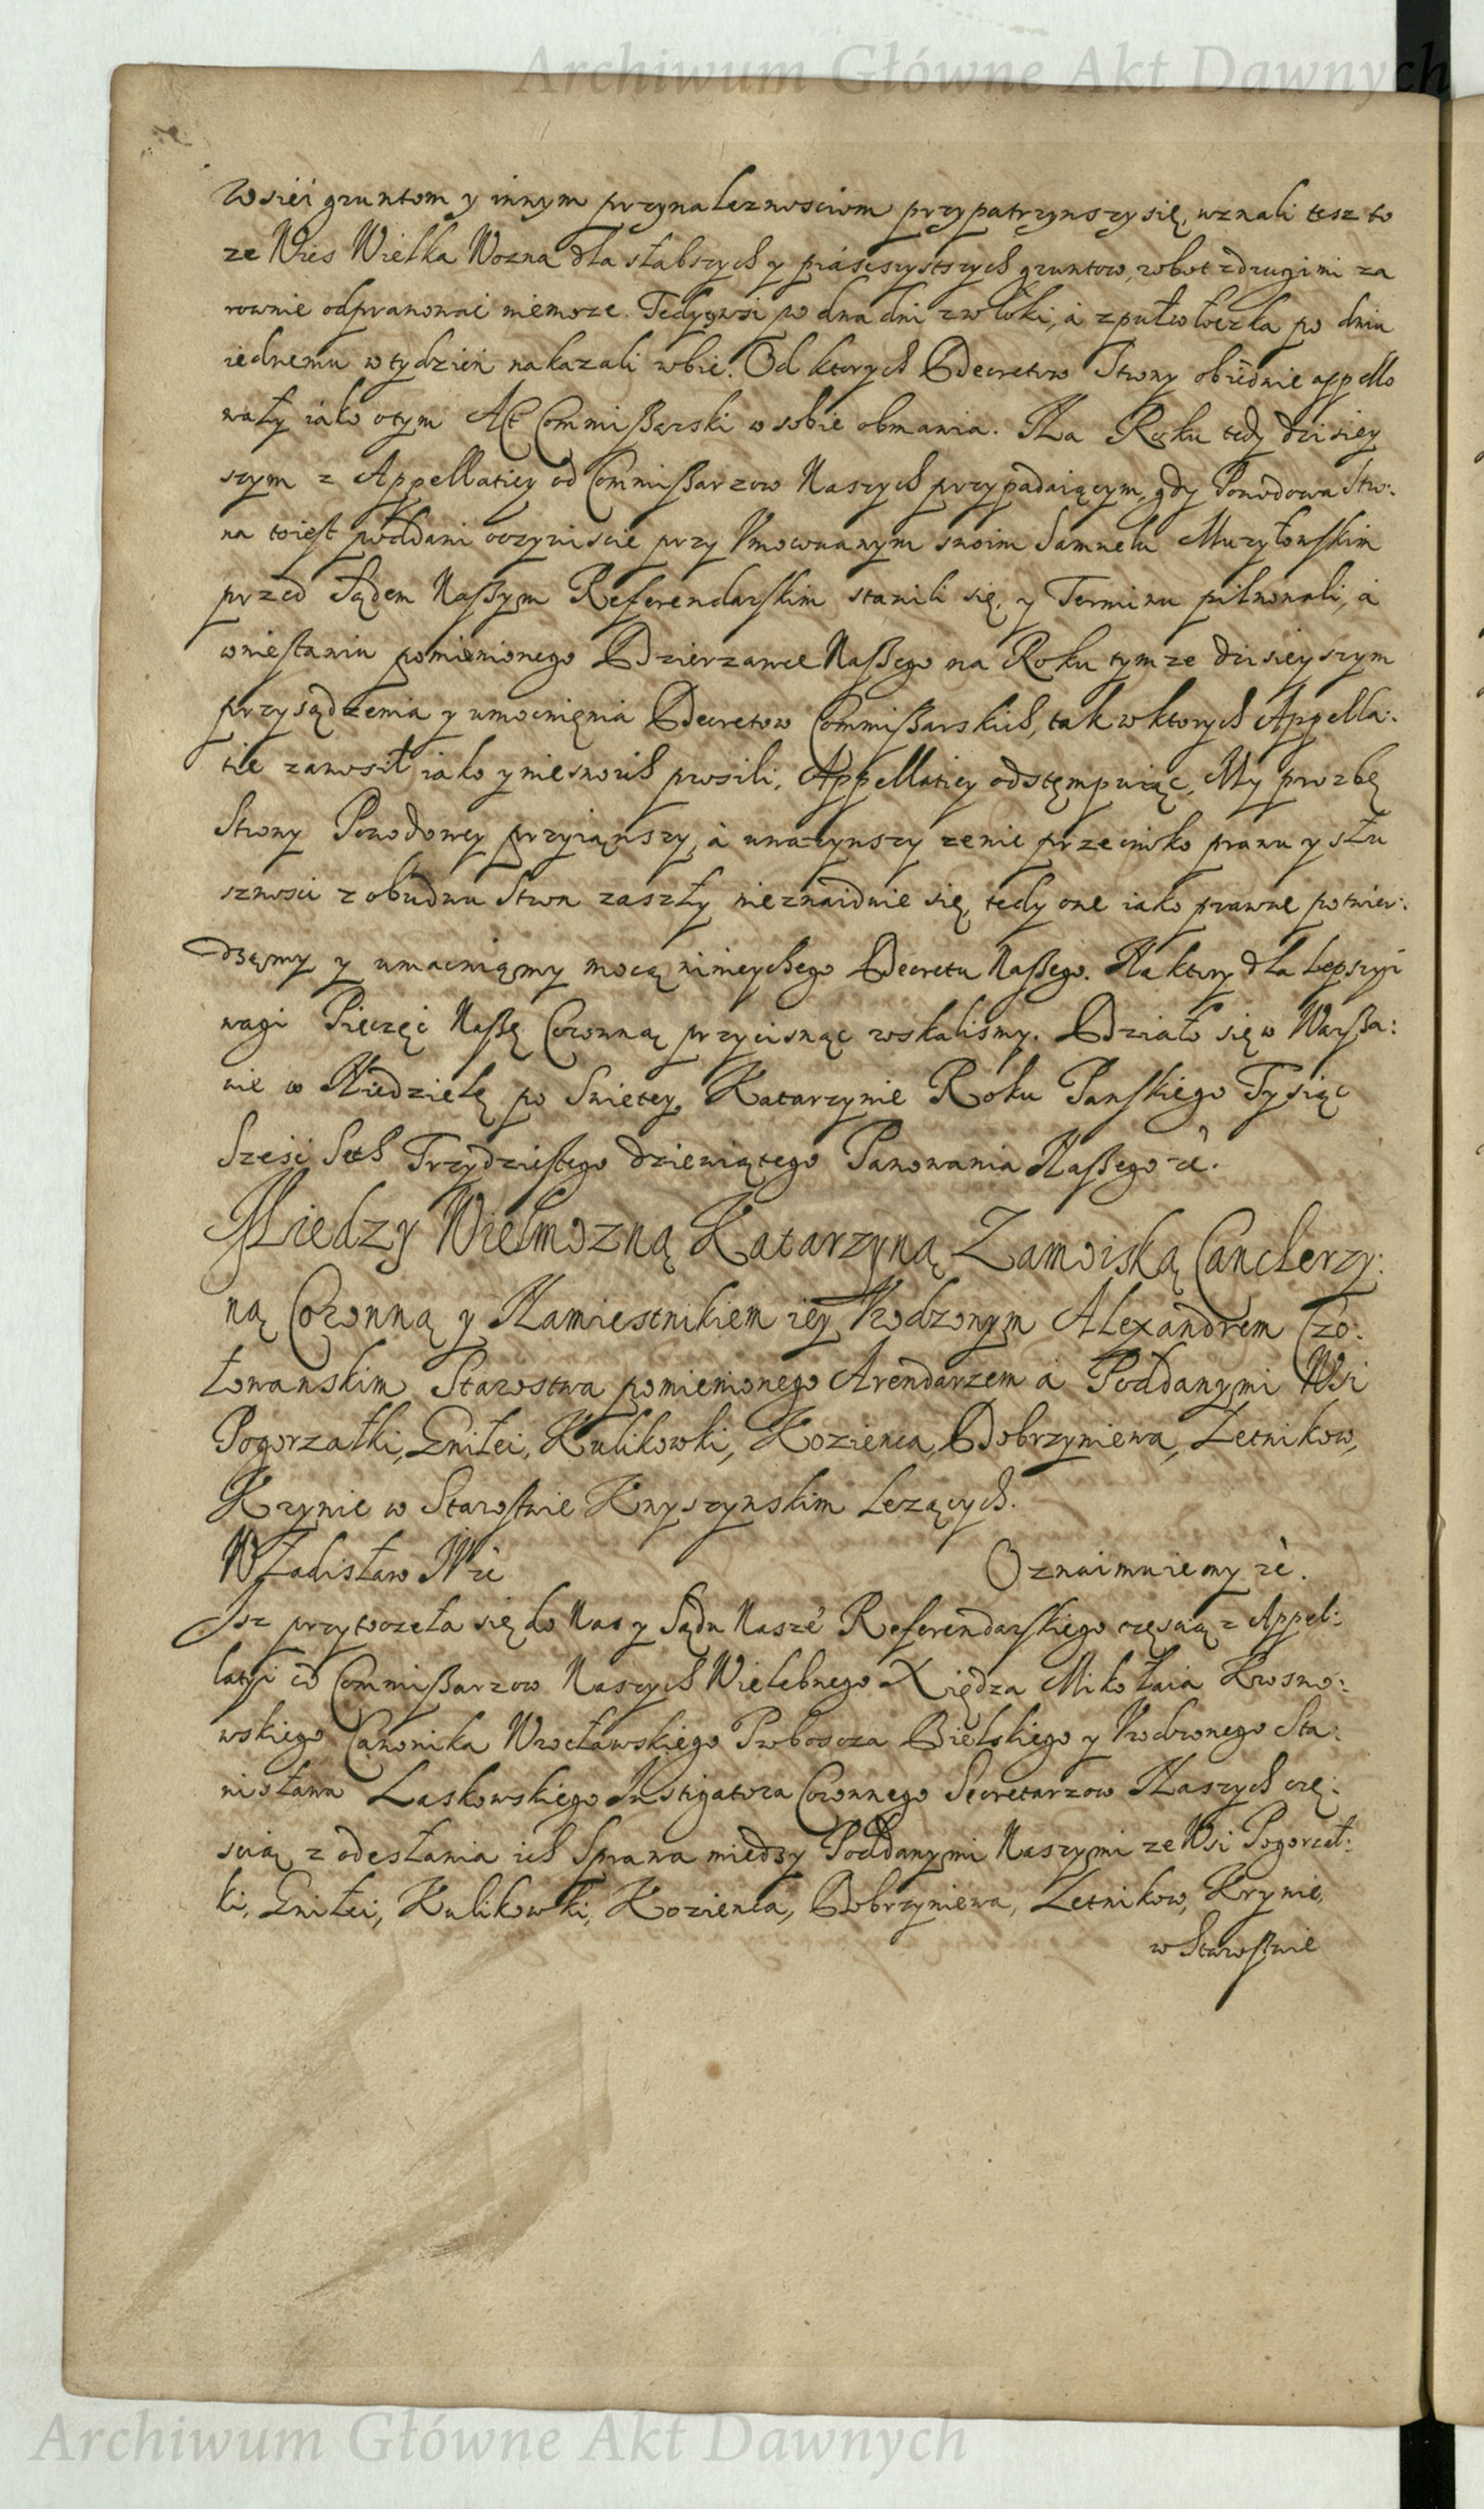 Archiwum Główne Akt Dawnych
Wsiei gruntom y innym przynaleznosciom przypatrzywszy się, uznali tesz to
ze Wies Wielka Wozna dla słabszych y piasczystszych gruntow, robot z drugimi za
rownie odprawowac niemoze. Tedy po dwa dni z włoki, a z pułwłoczka po dniu
iednemu w tydzień nakazali robić. Od ktorych Decretow Strony obiedwie appello
wały iako otym Act Commißarski w sobie obmawia. Na Roku tedy dzisiey
szym z Appellatiey od Commißarzow Naszych przypadaiącym, gdy Powodowa Stro:
na toiest poddani oczywiscie przy Vmocowanym swoim Samuelu Muzyłowskim
przed Sądem Naßym Referendarskim stawili się, y Terminu pilnowali, a
wniestaniu pomienionego Dzierzawce Naßego na Roku tymze dzisieyszym
przysądzenia y umocnięnia Decretow Commißarskich, tak w ktorych Appella:
tie zanosił iako y niesnosił prosili, Appellatiey odstęmpuiąc, My prozbę
Strony Powodowey przyiąwszy, a uważywszy ze nic przeciwko prawu y słu
sznosci z obudwu Stron zaszły nieznaiduie się, tedy one iako prawne potwier:
dzamy y umacniamy mocą ninieyszego Decretu Naßego. Na ktory dla Lepszyi
wagi Pieczęć Naßę Coronną przycisnąc roskalismy. Działo się w Warßa:
wie w Niedzielę po Swietey Katarzynie Roku Panskiego Tysiąc
Szesc Seth Trzydziestego dziewiątego Panowania Naßego ec.
Miedzy Wielmozną Katarzyną Zamoiską Canclerzy:
ną Coronną y Namiestnikiem iey Vrodzonym Alexandrem Czo:
łowanskim Starostwa pomienionego Arendarzem a Poddanymi Wsi
Pogorzałki, Gniłei, Kulikowki, Kozienca, Dobrzyniewa, Letnikow,
Krynie w Starostwie Knyszynskim Lezących.
Władisław IV ec Oznaimuiemy ec.
Isz przytoczeła się do Nas y Sądu Nasze Referendarskiego częscią z Appel:
latyi od Commißarzow Naszych Wielebnego Xiędza Mikołaia Krosno:
wskiego Canonika Wrocławskiego Proboscza Bielskiego y Vrodzonego Sta:
nisława Laskowskiego Instigatora Coronnego Secretarzow Naszych czę:
scią z odesłania ich Sprawa miedzy Poddanymi Naszymi ze Wsi Pogorzeł:
ki, Gniłei, Kulikowki, Kozienca, Dobrzyniewa, Letnikow, Krynie,
w Starostwie
Archiwum Główne Akt Dawnych